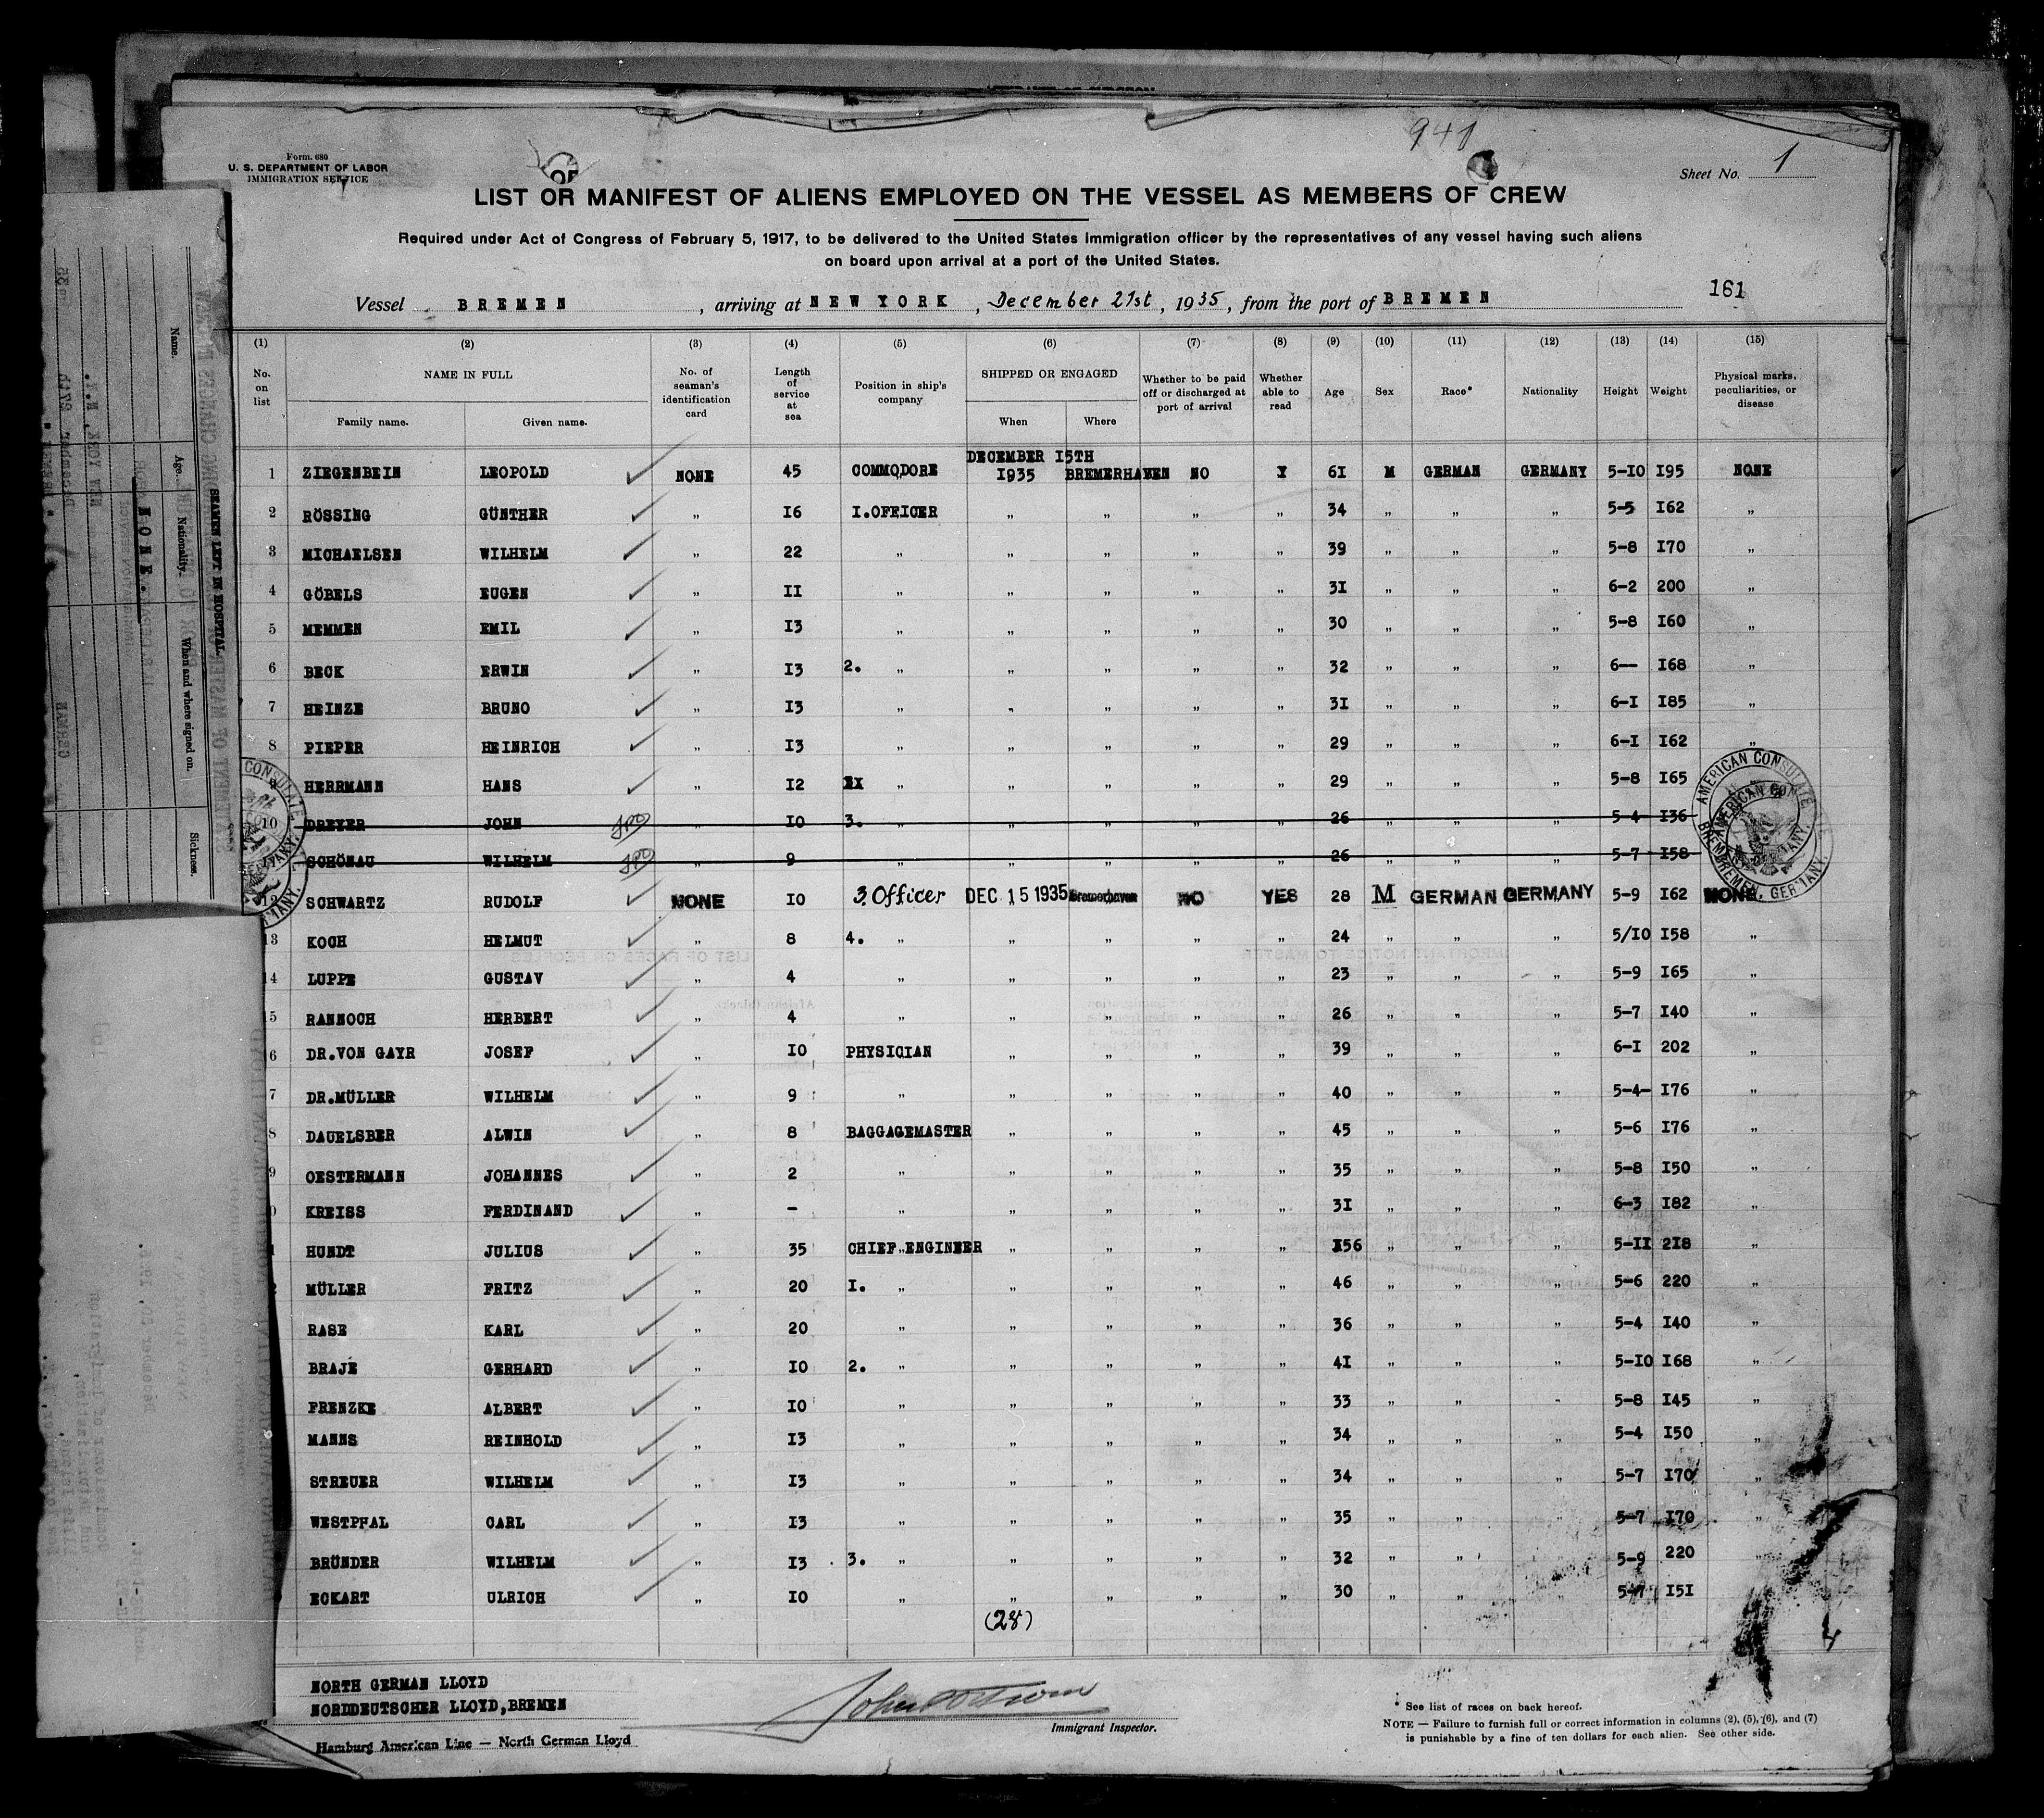 941
Form. 680
U. S. DEPARTMENT OF LABOR
IMMIGRATION SERVICE
Sheet No. 1
LIST OR MANIFEST OF ALIENS EMPLOYED ON THE VESSEL AS MEMBERS OF CREW
Required under Act of Congress of February 5, 1917, to be delivered to the United States Immigration officer by the representatives of any vessel having such aliens
on board upon arrival at a port of the United States.
Vessel BREMEN, arriving at NEW YORK, December 21st, 1935, from the port of BREMEN 161
(1) (2) (3) (4) (5) (6) (7) (8) (9) (10) (11) (12) (13) (14) (15)
No. on list NAME IN FULL No. of seaman's identification card Length of service at sea Position in ship's company SHIPPED OR ENGAGED Whether to be paid off or discharged at port of arrival Whether able to read Age Sex Race* Nationality Height Weight Physical marks, peculiarities, or disease
Family name. Given name. When Where
1 ZIEGENBEIN LEOPOLD NONE 45 COMMODORE DECEMBER 15TH 1935 BREMERHAVEN NO Y 61 M GERMAN GERMANY 5-10 195 NONE
2 RÖSSING GÜNTHER " 16 I.OFFICER " " " " 34 " " " 5-5 162 "
3 MICHAELSEN WILHELM " 22 " " " " " 39 " " " 5-8 170 "
4 GÖBELS EUGEN " 11 " " " " " 31 " " " 6-2 200 "
5 MEMMEN EMIL " 13 " " " " " 30 " " " 5-8 160 "
6 BECK ERWIN " 13 2. " " " " " 32 " " " 6-- 168 "
7 HEINZE BRUNO " 13 " " " " " 31 " " " 6-1 185 "
8 PIEPER HEINRICH " 13 " " " " " 29 " " " 6-1 162 "
9 HERRMANN HANS " 12 " " " " " 29 " " " 5-8 165
10 DREYER JOHN " 10 3. " " " " " 26 " " " 5-4 136
11 SCHÖNAU WILHELM " 9 " " " " " 26 " " " 5-7 158
12 SCHWARTZ RUDOLF NONE 10 3. Officer DEC 15 1935 Bremerhaven NO YES 28 M GERMAN GERMANY 5-9 162 NONE
13 KOCH HELMUT " 8 4. " " " " " 24 " " " 5/10 158 "
14 LUPPE GUSTAV " 4 " " " " " 23 " " " 5-9 165 "
5 RANNOCH HERBERT " 4 " " " " " 26 " " " 5-7 140 "
6 DR.VON GAYR JOSEF " 10 PHYSICIAN " " " " 39 " " " 6-1 202 "
7 DR.MÜLLER WILHELM " 9 " " " " " 40 " " " 5-4- 176 "
8 DAUELSBER ALWIN " 8 BAGGAGEMASTER " " " " 45 " " " 5-6 176 "
9 OESTERMANN JOHANNES " 2 " " " " " 35 " " " 5-8 150 "
0 KREISS FERDINAND " - " " " " " 31 " " " 6-3 182 "
1 HUNDT JULIUS " 35 CHIEF ENGINEER " " " " 56 " " " 5-11 218 "
2 MÜLLER FRITZ " 20 I. " " " " " 46 " " " 5-6 220 "
RASE KARL " 20 " " " " " 36 " " " 5-4 140 "
BRAJE GERHARD " 10 2. " " " " " 41 " " " 5-10 168 "
FRENZKE ALBERT " 10 " " " " " 33 " " " 5-8 145 "
MANNS REINHOLD " 13 " " " " " 34 " " " 5-4 150 "
STREUER WILHELM " 13 " " " " " 34 " " " 5-7 170 "
WESTPHAL CARL " 13 " " " " " 35 " " " 5-7 170 "
BRÜNDER WILHELM " 13 3. " " " " " 32 " " " 5-9 220 "
ECKART ULRICH " 10 " " " " " 30 " " " 5-7 151 "
(28)
AMERICAN CONSULATE
BREMEN, GERMANY.
NORTH GERMAN LLOYD
NORDDEUTSCHER LLOYD,BREMEN
Hamburg American Line — North German Lloyd
Immigrant Inspector.
* See list of races on back hereof.
NOTE — Failure to furnish full or correct information in columns (2), (5), (6), and (7)
is punishable by a fine of ten dollars for each alien. See other side.
SEAMEN LEFT IN HOSPITAL.
Name. Age. Nationality. When and where signed on. Sickness.
NONE.